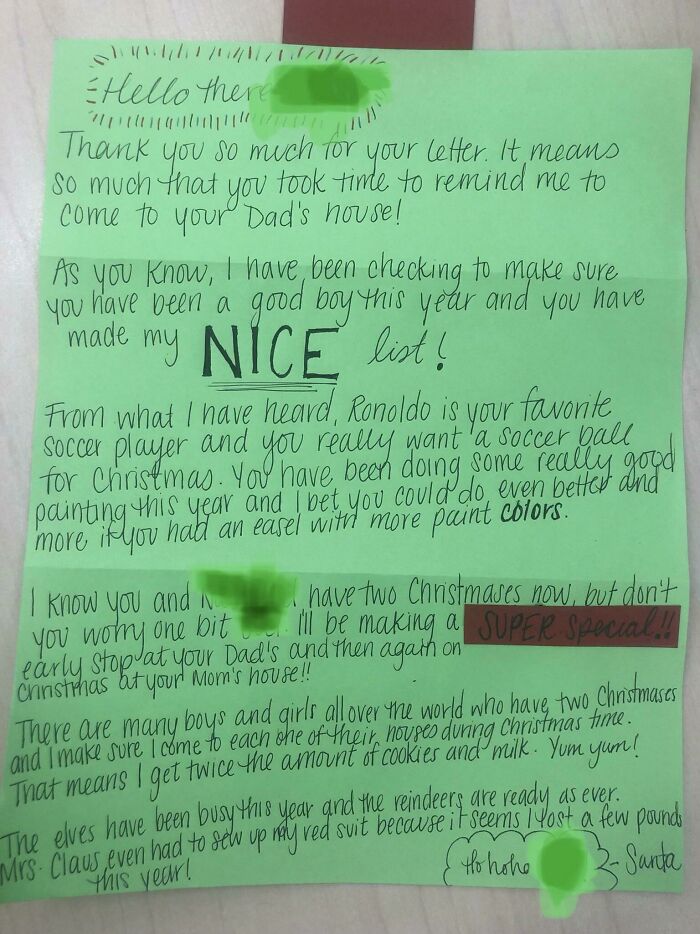 Hello there
Thank you so much for your letter. It means
so much that you took time to remind me to
come to your Dad's house!
As you know, I have been checking to make sure
you have been a good boy this year and you have
made my NICE list!
From what I have heard, Ronoldo is your favorite
soccer player and you really want a soccer ball
for Christmas. You have been doing some really good
painting this year and I bet you could do even better and
more if you had an easel with more paint colors.
I know you and have two Christmases now, but don't
you worry one bit I'll be making a SUPER special!!
early stop at your Dad's and then again on
Christmas at your Mom's house!!
There are many boys and girls all over the world who have two Christmases
and I make sure I come to each one of their houses during Christmas time.
That means I get twice the amount of cookies and milk. Yum yum!
The elves have been busy this year and the reindeers are ready as ever.
Mrs. Claus even had to sew up my red suit because it seems I lost a few pounds
this year!
Ho hoho - Santa